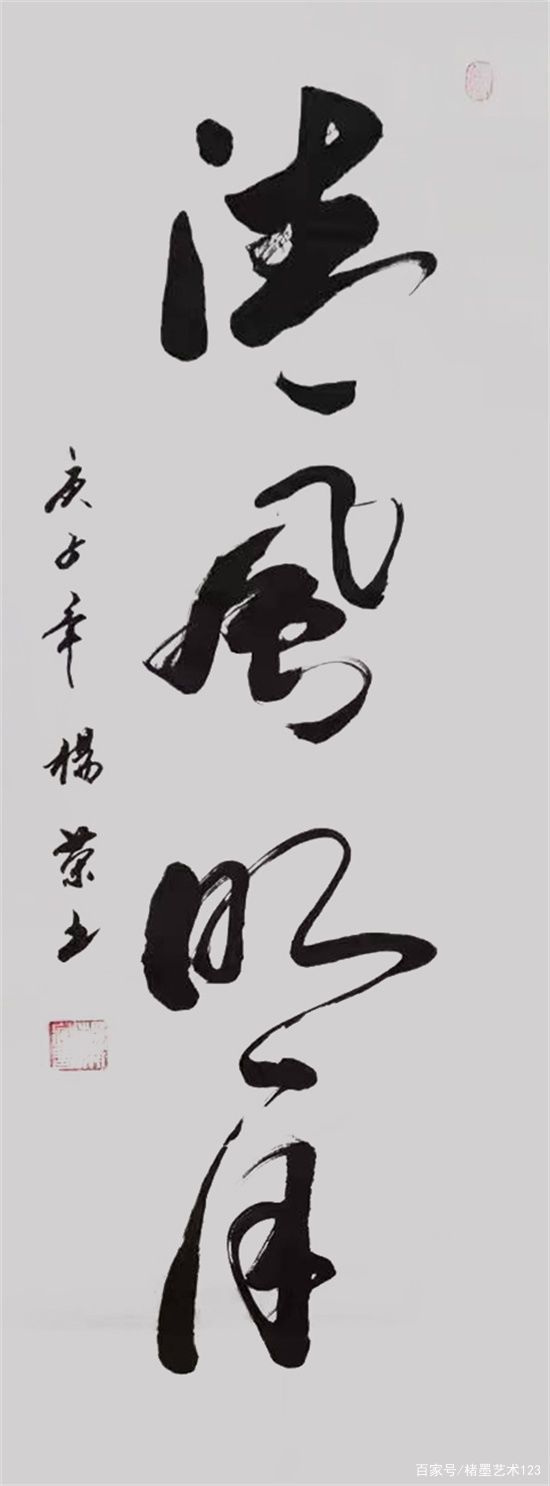 清风明月
庚子年 楊荣书
百家号/楮墨艺术123